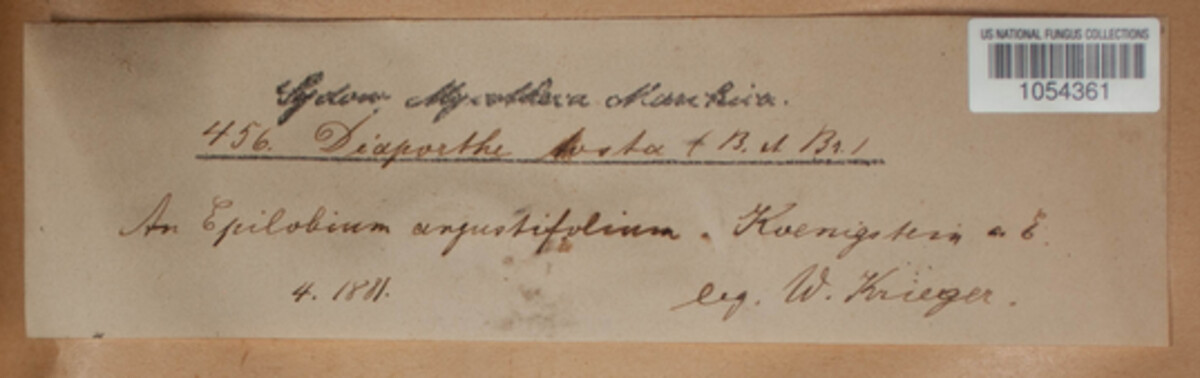 US NATIONAL FUNGUS COLLECTIONS
1054361
Sydow Mycotheca Marchica.
456. Diaporthe tosta (B. et Br.)
An Epilobium angustifolium. Koenigstein a E.
4. 1881.
leg. W. Krieger.